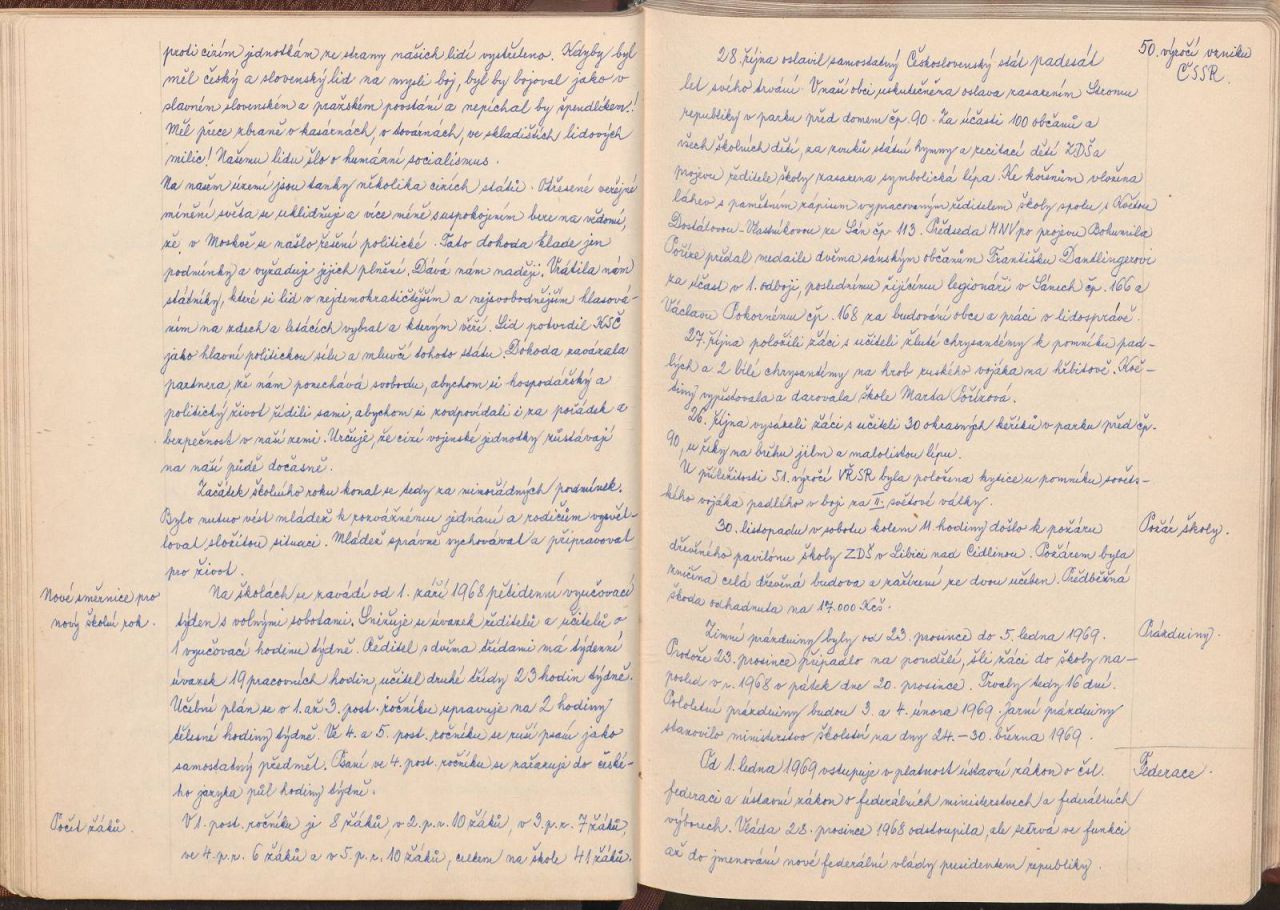 proti cizím jednotkám ze strany našich lidí vystřeleno. Kdyby byl
měl český a slovenský lid na mysli boj, byl by bojoval jako v
slavném slovenském a pražském povstání a nepíchal by špendlíkem!
Měl přece zbraně v kasárnách, v továrnách, ve skladištích lidových
milic! Našemu lidu šlo o humánní socialismus.
Na našem území jsou tanky několika cizích států. Otřesené veřejné
mínění světa se uklidňuje a více méně s uspokojením bere na vědomí,
že v Moskvě se našlo řešení politické. Tato dohoda klade jen
podmínky a vyžaduje jejich plnění. Dává nám naději. Vrátila nám
státníky, které si lid v nejdemokratičtějším a nejsvobodnějším hlasová-
ním na zdech a letácích vybral a kterým věří. Lid potvrdil KSČ
jako hlavní politickou sílu a mluvčí tohoto státu. Dohoda zavázala
partnera, že nám ponechává svobodu, abychom si hospodářský a
politický život řídili sami, abychom si zodpovídali i za pořádek a
bezpečnost v naší zemi. Určuje, že cizí vojenské jednotky zůstávají
na naší půdě dočasně.
Začátek školního roku konal se tedy za mimořádných podmínek.
Bylo nutno vést mládež k rozvážnému jednání a rodičům vysvět-
lovat složitou situaci. Mládež správně vychovávat a připravovat
pro život.
Nové směrnice pro
nový školní rok.
Na školách se zavádí od 1. září 1968 pětidenní vyučovací
týden s volnými sobotami. Snižuje se úvazek ředitelů a učitelů o
1 vyučovací hodinu týdně. Ředitel s dvěma třídami má týdenní
úvazek 19 pracovních hodin, učitel druhé třídy 23 hodin týdně.
Učební plán se v 1. až 3. post. ročníku upravuje na 2 hodiny
tělesné hodiny týdně. Ve 4. a 5. post. ročníku se ruší psaní jako
samostatný předmět. Psaní ve 4. post. ročníku se zařazuje do české-
ho jazyka půl hodiny týdně.
Počet žáků.
V 1. post. ročníku je 8 žáků, v 2. p. r. 10 žáků, v 3. p. r. 7 žáků,
ve 4. p. r. 6 žáků a v 5. p. r. 10 žáků, celkem na škole 41 žáků.
50. výročí vzniku
ČSSR.
28. října oslavil samostatný Československý stát padesát
let svého trvání. V naší obci uskutečněna oslava zasazením Stromu
republiky v parku před domem čp. 90. Za účasti 100 občanů a
všech školních dětí, za zvuků státní hymny a recitací dětí ZDŠ a
projevu ředitele školy zasazena symbolická lípa. Ke kořenům vložena
láhev s pamětním zápisem vypracovaným ředitelem školy spolu s Květou
Dostálovou-Vlastníkovou ze Sán čp. 113. Předseda MNV po projevu Bohumila
Poříze předal medaile dvěma sánským občanům Františku Dantlingerovi
za účast v 1. odboji, poslednímu žijícímu legionáři v Sánech čp. 166 a
Václavu Pokornému čp. 168 za budování obce a práci v lidosprávě.
27. října položili žáci s učiteli žluté chrysantémy k pomníku pad-
lých a 2 bílé chrysantémy na hrob ruského vojáka na hřbitově. Kvě-
tiny vypěstovala a darovala škole Marta Pořízová.
26. října vysázeli žáci s učiteli 30 okrasných keříků v parku před čp.
90, u řeky na břehu jilm a malolistou lípu.
U příležitosti 51. výročí VŘSR byla položena kytice u pomníku sovět-
ského vojáka padlého v boji za II. světové války.
Požár školy.
30. listopadu v sobotu kolem 11. hodiny došlo k požáru
dřevěného pavilónu školy ZDŠ v Libici nad Cidlinou. Požárem byla
zničena celá dřevěná budova a zařízení ze dvou učeben. Předběžná
škoda odhadnuta na 17.000 Kčs.
Prázdniny.
Zimní prázdniny byly od 23. prosince do 5. ledna 1969.
Protože 23. prosince připadlo na pondělí, šli žáci do školy na-
posled v r. 1968 v pátek dne 20. prosince. Trvaly tedy 16 dní.
Pololetní prázdniny budou 3. a 4. února 1969. Jarní prázdniny
stanovilo ministerstvo školství na dny 24. - 30. března 1969.
Federace.
Od 1. ledna 1969 vstupuje v platnost ústavní zákon o čsl.
federaci a ústavní zákon o federálních ministerstvech a federálních
výborech. Vláda 28. prosince 1968 odstoupila, ale setrvá ve funkci
až do jmenování nové federální vlády presidentem republiky.